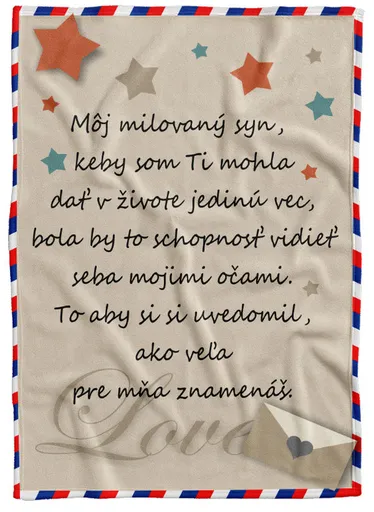 Môj milovaný syn,
keby som Ti mohla
dať v živote jedinú vec,
bola by to schopnosť vidieť
seba mojimi očami.
To aby si si uvedomil,
ako veľa
pre mňa znamenáš.
Love